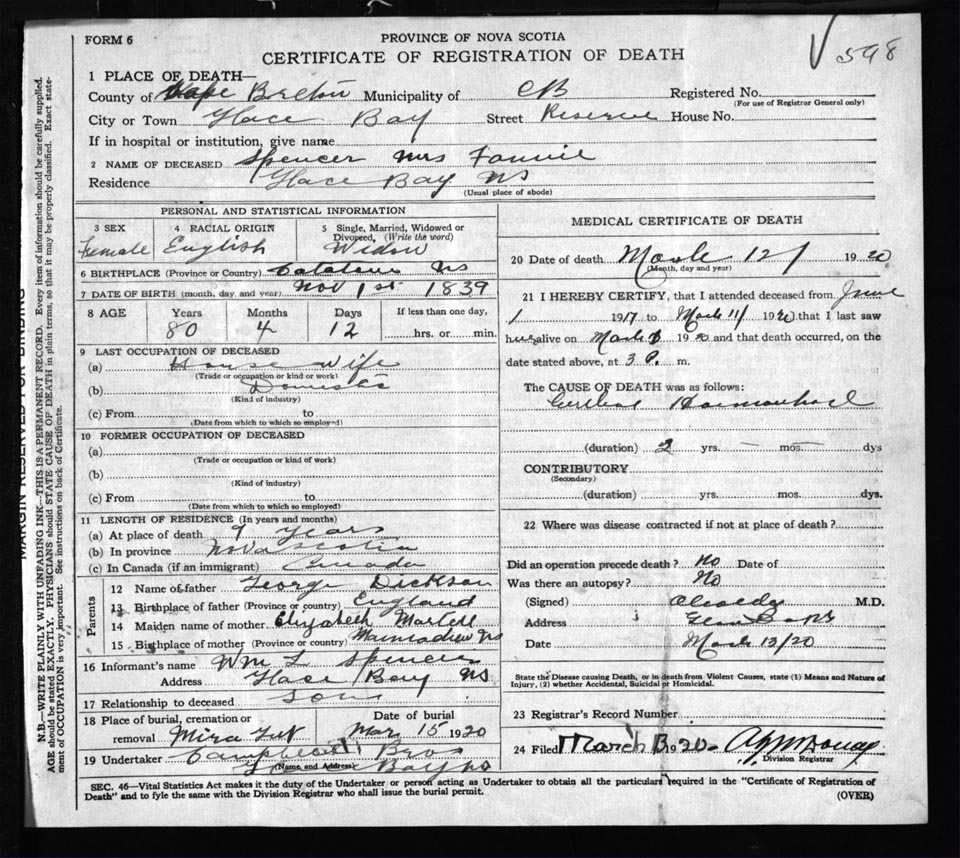 598
FORM 6
PROVINCE OF NOVA SCOTIA
CERTIFICATE OF REGISTRATION OF DEATH
1 PLACE OF DEATH—
County of Cape Breton Municipality of CB Registered No.
(For use of Registrar General only)
City or Town Glace Bay Street Reserve House No.
If in hospital or institution, give name
2 NAME OF DECEASED Spencer Mrs Fannie
Residence Glace Bay NS
(Usual place of abode)
PERSONAL AND STATISTICAL INFORMATION
3 SEX 4 RACIAL ORIGIN 5 Single, Married, Widowed or Divorced, (Write the word)
Female English Widow
6 BIRTHPLACE (Province or Country) NS
7 DATE OF BIRTH (month, day and year) Nov 1st 1839
8 AGE Years Months Days If less than one day,
80 4 12 hrs. or min.
9 LAST OCCUPATION OF DECEASED
(a) House Wife
(Trade or occupation or kind or work)
(b) Domestic
(Kind of industry)
(c) From to
(Date from which to which so employed)
10 FORMER OCCUPATION OF DECEASED
(a)
(Trade or occupation or kind of work)
(b)
(Kind of industry)
(c) From to
(Date from which to which so employed)
11 LENGTH OF RESIDENCE (In years and months)
(a) At place of death 9 years
(b) In province Nova Scotia
(c) In Canada (if an immigrant) Canada
Parents
12 Name of father George Dickson
13 Birthplace of father (Province or country) England
14 Maiden name of mother Elizabeth Martell
15 Birthplace of mother (Province or country) Mainadieu NS
16 Informant's name Wm L Spencer
Address Glace Bay NS
17 Relationship to deceased Son
18 Place of burial, cremation or removal Mira Date of burial Mar 15 1920
19 Undertaker Campbell Bros
(Name and Address)
Glace Bay NS
MEDICAL CERTIFICATE OF DEATH
20 Date of death March 12 1920
(Month, day and year)
21 I HEREBY CERTIFY, that I attended deceased from June
1 1917 to March 11 1920 that I last saw
her alive on March 19 20 and that death occurred, on the
date stated above, at 3 P. m.
The CAUSE OF DEATH was as follows:
(duration) 2 yrs. mos. dys
CONTRIBUTORY
(Secondary)
(duration) yrs. mos. dys.
22 Where was disease contracted if not at place of death?
Did an operation precede death? No Date of
Was there an autopsy? No
(Signed) M.D.
Address Glace Bay NS
Date March 13/20
State the Disease causing Death, or in death from Violent Causes, state (1) Means and Nature of
Injury, (2) whether Accidental, Suicidal or Homicidal.
23 Registrar's Record Number
24 Filed March 13. 20
Division Registrar
SEC. 46—Vital Statistics Act makes it the duty of the Undertaker or person acting as Undertaker to obtain all the particulars required in the "Certificate of Registration of
Death" and to fyle the same with the Division Registrar who shall issue the burial permit.
(OVER)
MARGIN RESERVED FOR BINDING
N.B.—WRITE PLAINLY WITH UNFADING INK—THIS IS A PERMANENT RECORD. Every item of information should be carefully supplied.
AGE should be stated EXACTLY. PHYSICIANS should STATE CAUSE OF DEATH in plain terms, so that it may be properly classified. Exact state-
ment of OCCUPATION is very important. See instructions on back of Certificate.